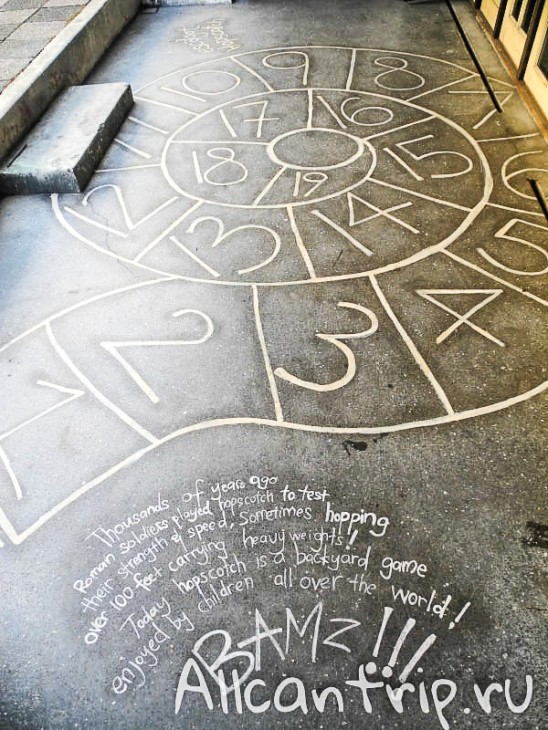 10
9
8
11
17
16
7
12
18
19
15
6
13
14
5
1
2
3
4
Thousands of years ago
Roman soldiers played hopscotch to test
their strength & speed, sometimes hopping
over 100 feet carrying heavy weights!
Today hopscotch is a backyard game
enjoyed by children all over the world!
BAMZ!!!
Allcantrip.ru